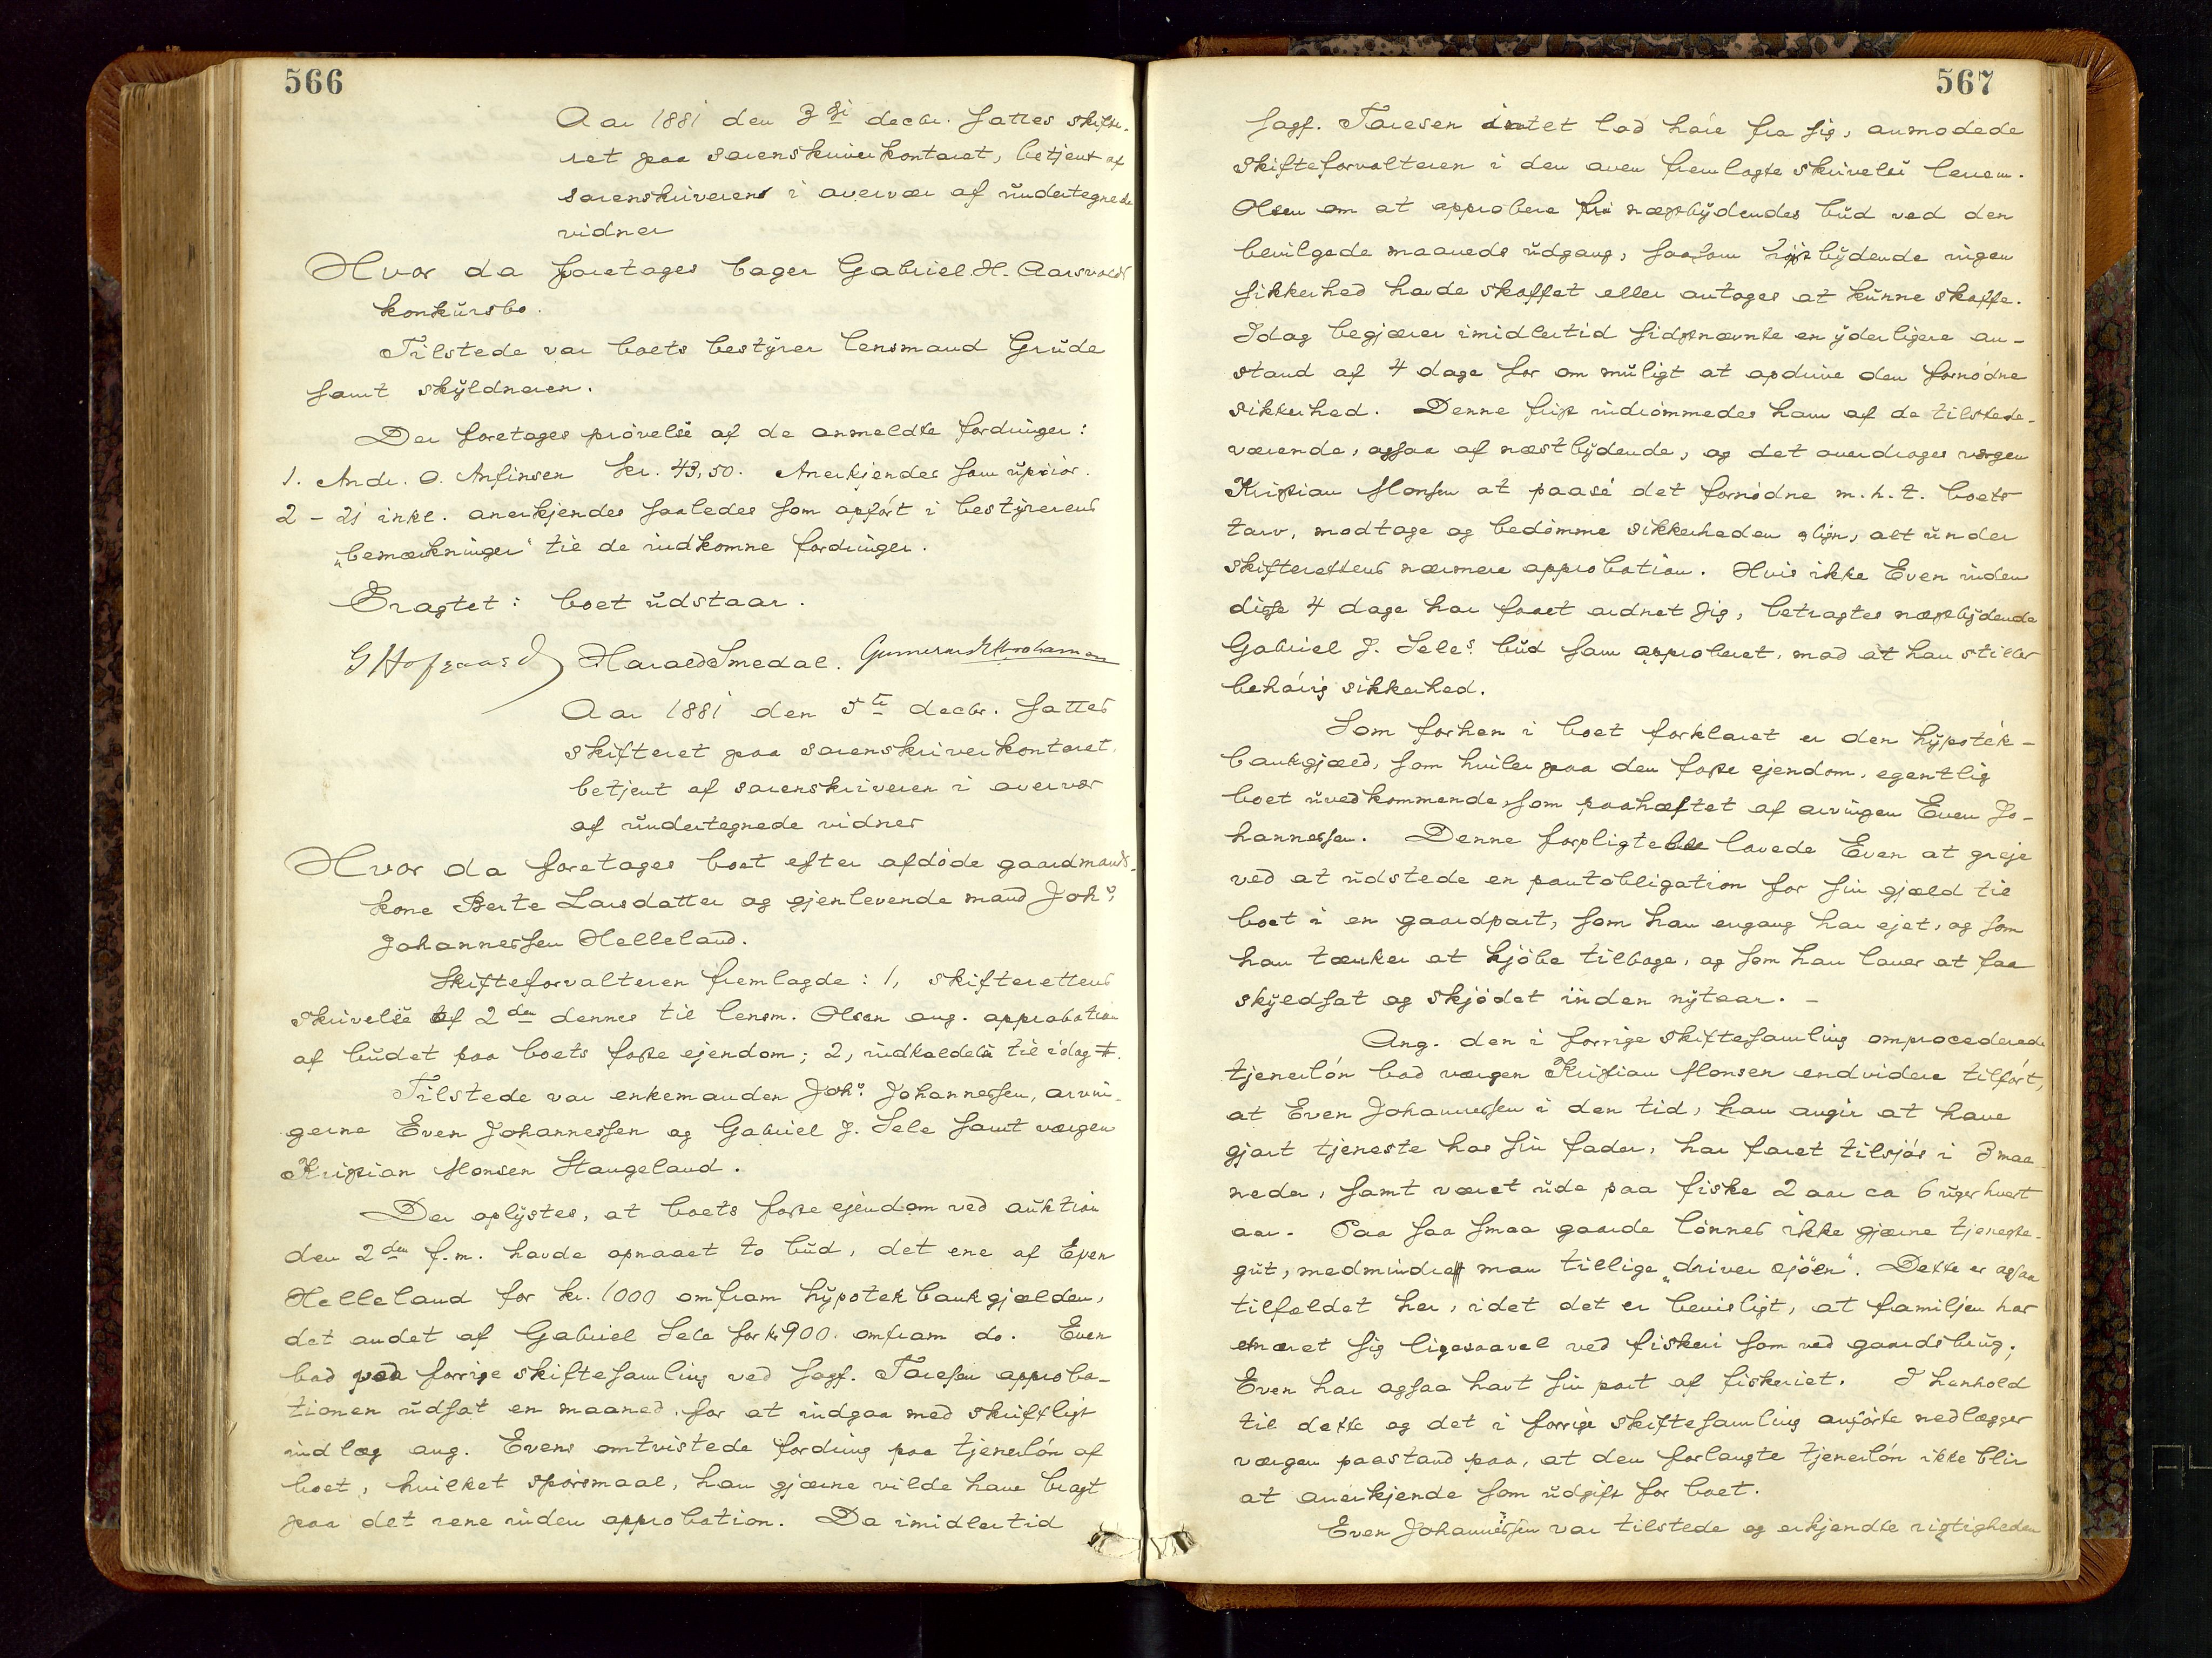 566
Aar 1881 den 3di decbr. sattes skifte-
ret paa sorenskriverkontoret, betjent af
sorenskriverens i overvær af undertegnede
vidner
Hvor da foretages bager Gabriel H. Aarsvolds
konkursbo.
Tilstede var boets bestyrer lensmand Grude
samt skyldneren.
Der foretoges prøvelse af de anmeldte fordringer:
1. Andr. O. Anfinsen kr. 43,50. Anerkjendes som uprior.
2 - 21 inkl. anerkjendes saaledes som opført i bestyrerens
"bemærkninger" til de indkomne fordringer.
Eragtet: boet udstaar.
G Hofgaard Harald Smedal.
Aar 1881 den 5te decbr. sattes
skifteret paa sorenskriverkontoret,
betjent af sorenskriveren i overvær
af undertegnede vidner
Hvor da foretages boet efter afdøde gaardmands-
kone Berte Larsdatter og gjenlevende mand Johs
Johannessen Helleland.
Skifteforvalteren fremlagde: 1, skifterettens
skrivelse af 2den dennes til lensm. Olsen ang. approbation
af budet paa boets faste ejendom; 2, indkaldelse til idag.
Tilstede var enkemanden Johs Johannessen, arvin-
gerne Even Johannessen og Gabriel J. Sele samt værgen
Kristian Monsen Stangeland.
Der oplystes, at boets faste ejendom ved auktion
den 2den f.m. havde opnaaet to bud, det ene af Even
Helleland for kr. 1000 omfram hypotekbankgjælden,
det andet af Gabriel Sele for kr 900. omfram do. Even
bad ved forrige skiftesamling ved sagf. Taresen approba-
tionen udsat en maaned, for at indgaa med skriftligt
indlæg ang. Evens omtvistede fordring paa tjenerløn af
boet, hvilket spørsmaal, han gjærne vilde have bragt
paa det rene inden approbation. Da imidlertid
567
sagf. Taresen intet lod høre fra sig, anmodede
skifteforvalteren i den oven fremlagte skrivelse lensm.
Olsen om at approbere næstbydendes bud ved den
bevilgede maaneds udgang, saasom høistbydende ingen
sikkerhed havde skaffet eller antages at kunne skaffe.
Idag begjærer imidlertid sidstnævnte en yderligere an-
stand af 4 dage for om muligt at opdrive den fornødne
sikkerhed. Denne frist indrømmedes ham af de tilstede-
værende, ogsaa af næstbydende, og det overdroges værgen
Kristian Monsen at paasé det fornødne m.h.t. boets
tarv, modtage og bedømme sikkerheden olign, alt under
skifterettens nærmere approbation. Hvis ikke Even inden
disse 4 dage har faaet ordnet sig, betragtes næstbydende
Gabriel J. Seles bud som approberet, mod at han stiller
behørig sikkerhed.
Som forhen i boet forklaret er den hypotek-
bankgjæld, som hviler paa den faste ejendom, egentlig
boet uvedkommende, som paahæftet af arvingen Even Jo-
hannessen. Denne forpligtelse lovede Even at greje
ved at udstede en pantobligation for sin gjæld til
boet i en gaardpart, som han engang har ejet, og som
han tænker at kjøbe tilbage, og som han lover at faa
skyldsat og skjødet inden nytaar. -
Ang. den i forrige skiftesamling omprocederede
tjenerløn bad værgen Kristian Monsen endvidere tilført,
at Even Johannessen i den tid, han angir at have
gjort tjeneste hos sin fader, har faret tilsjøs i 3 maa-
neder, samt været ude paa fiske 2 aar ca 6 uger hvert
aar. Paa saa smaa gaarde lønnes ikke gjærne tjeneste-
gut, medmindre man tillige "driver sjøen". Dette er ogsaa
tilfældet her, idet det er bevisligt, at familjen har
ernæret sig ligesaavel ved fiskeri som ved gaardsbrug;
Even har ogsaa havt sin part af fiskeriet. I henhold
til dette og det i forrige skiftesamling anførte nedlægger
værgen paastand paa, at den forlangte tjenerløn ikke blir
at anerkjende som udgift for boet.
Even Johannessen var tilstede og erkjendte rigtigheden